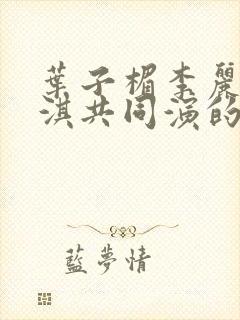 葉子楣李麗
淇共同演的
藍夢情